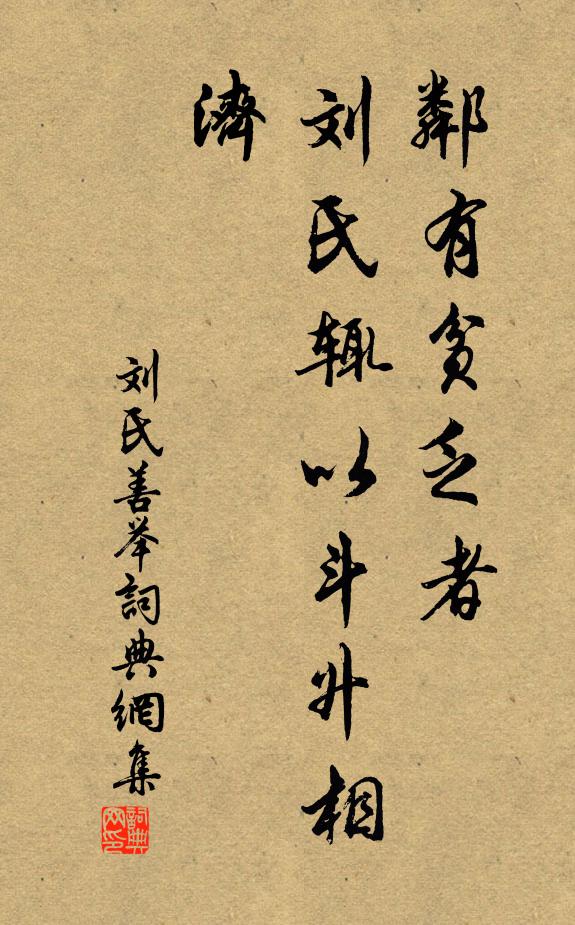 鄰有貧乏者
刘氏輒以斗升相
濟
刘氏善举詞典網集
詞典网印